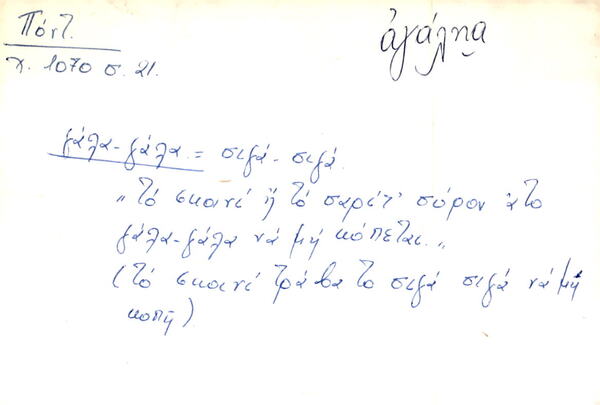 Πόντ.
χ. 1070 σ. 21.
ἀγάλι̯α
γάλα-γάλα = σιγά-σιγά.
"Τό σκοινί ἤ τό σαρίτ' σύρον ἀτο
γάλα-γάλα νά μή κόπεται."
(τό σκοινί τράβα το σιγά σιγά νά μή
κοπῆ)